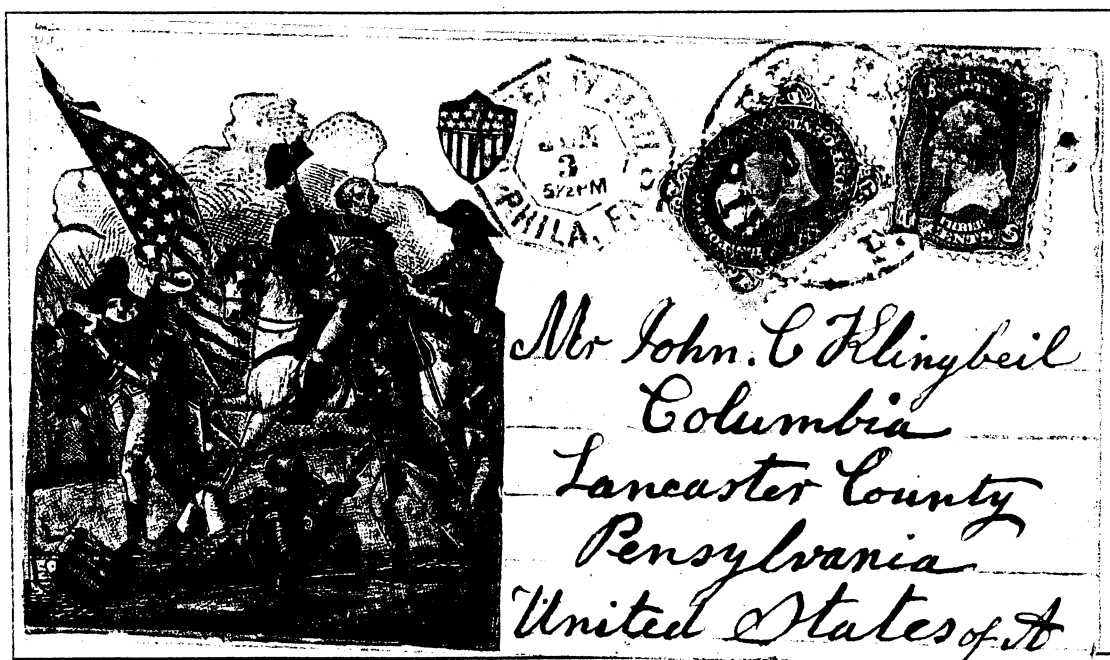 3
5 1/2 PM
PHILA,
THREE
CENTS
Mr John. C Klingbeil
Columbia
Lancaster County
Pensylvania
United States of A